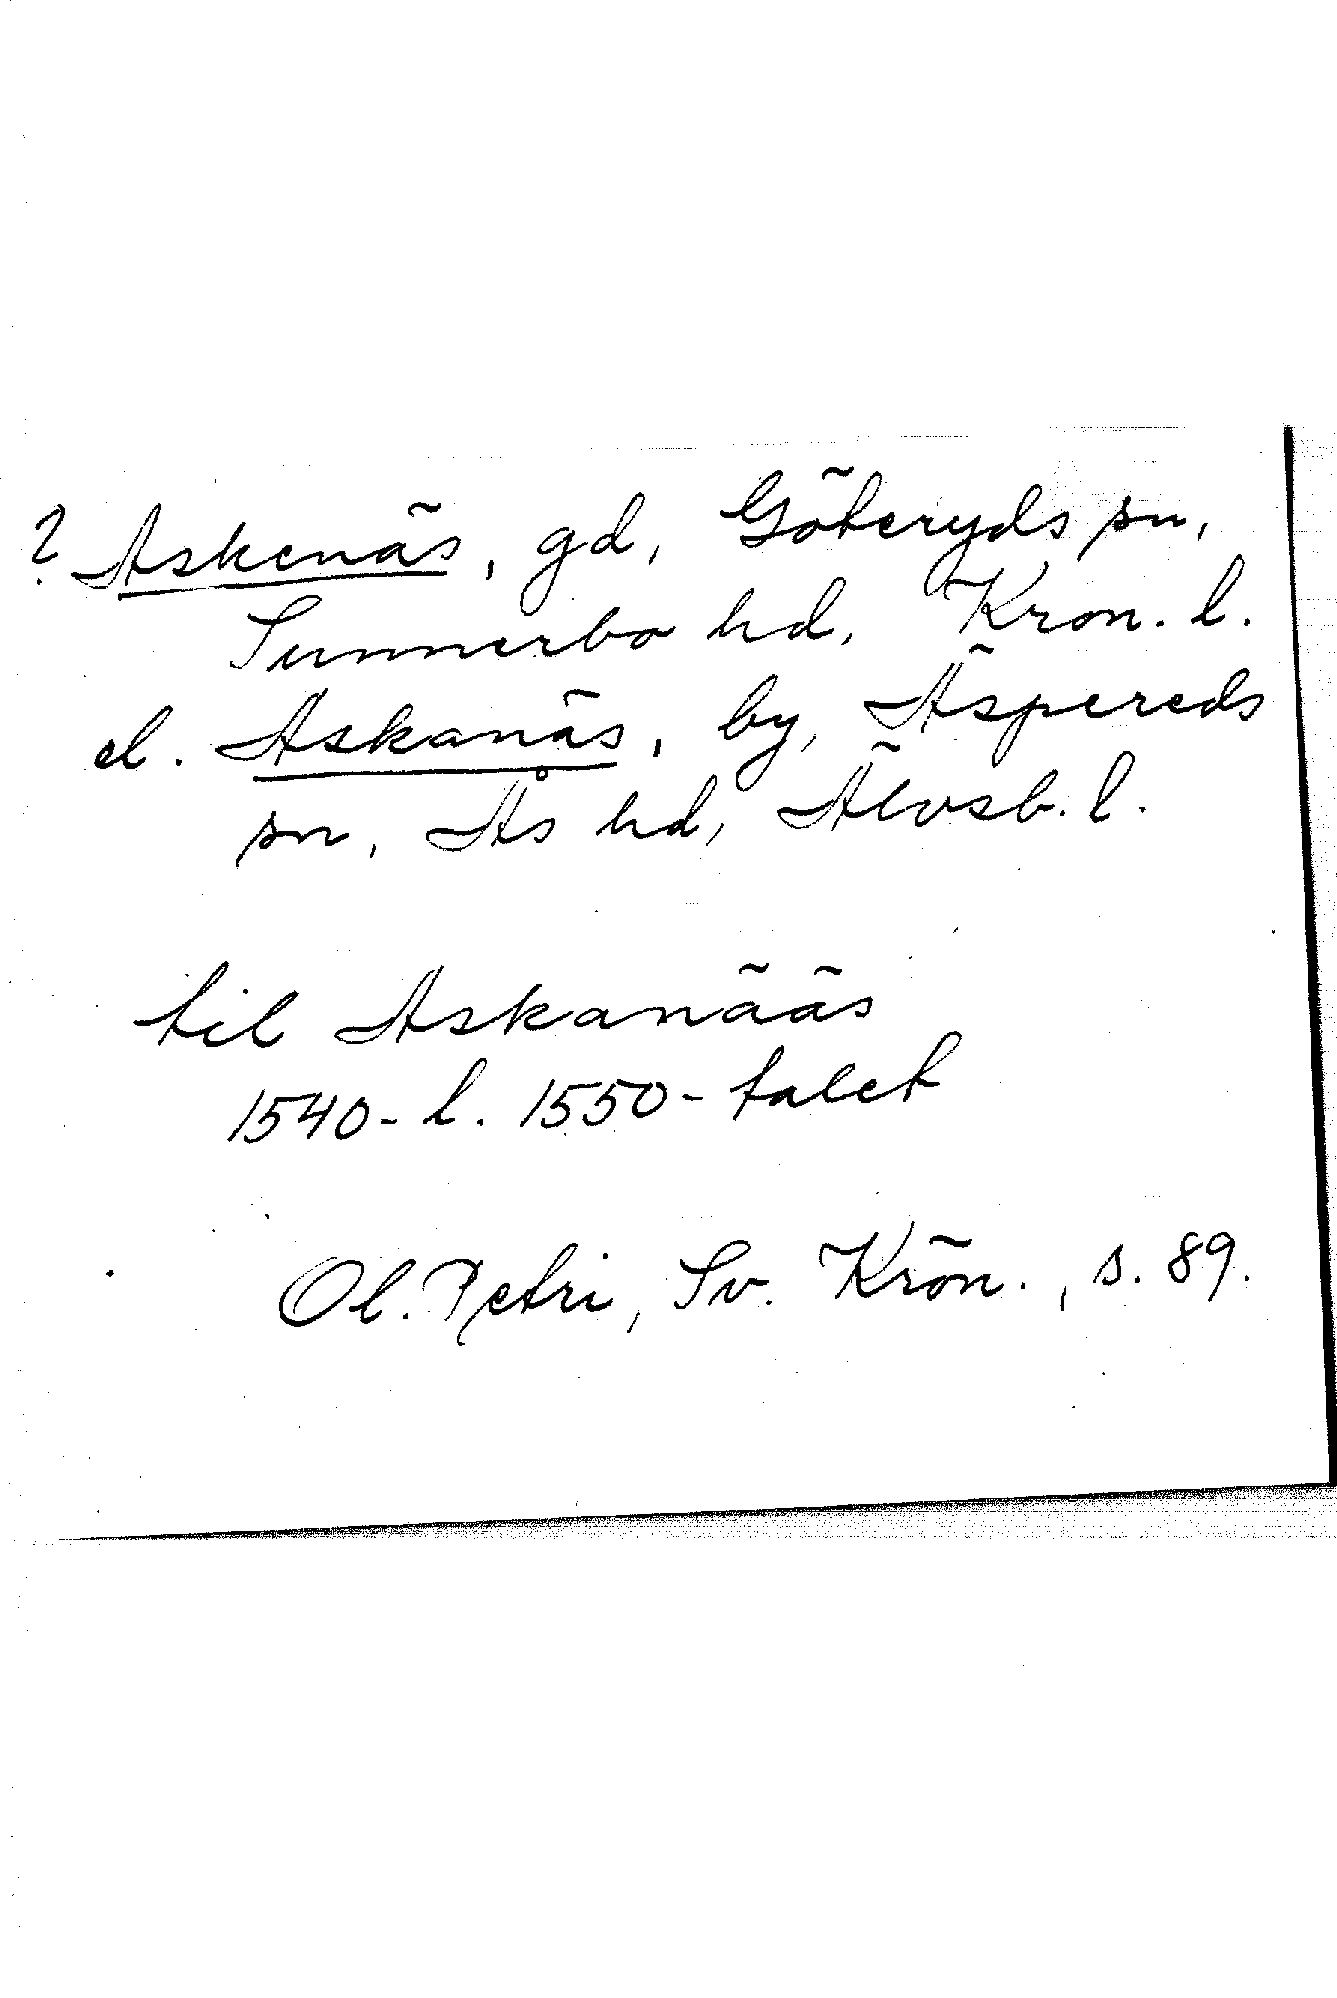 ? Askenäs, gd, Göteryds sn,
Sunnerbo hd, Kron. l.
el. Askanäs, by, Äspereds
sn, Ås hd, Älvsb. l.
til Askanääs
1540- l. 1550-talet
Ol. Petri, Sv. Krön., s. 89.